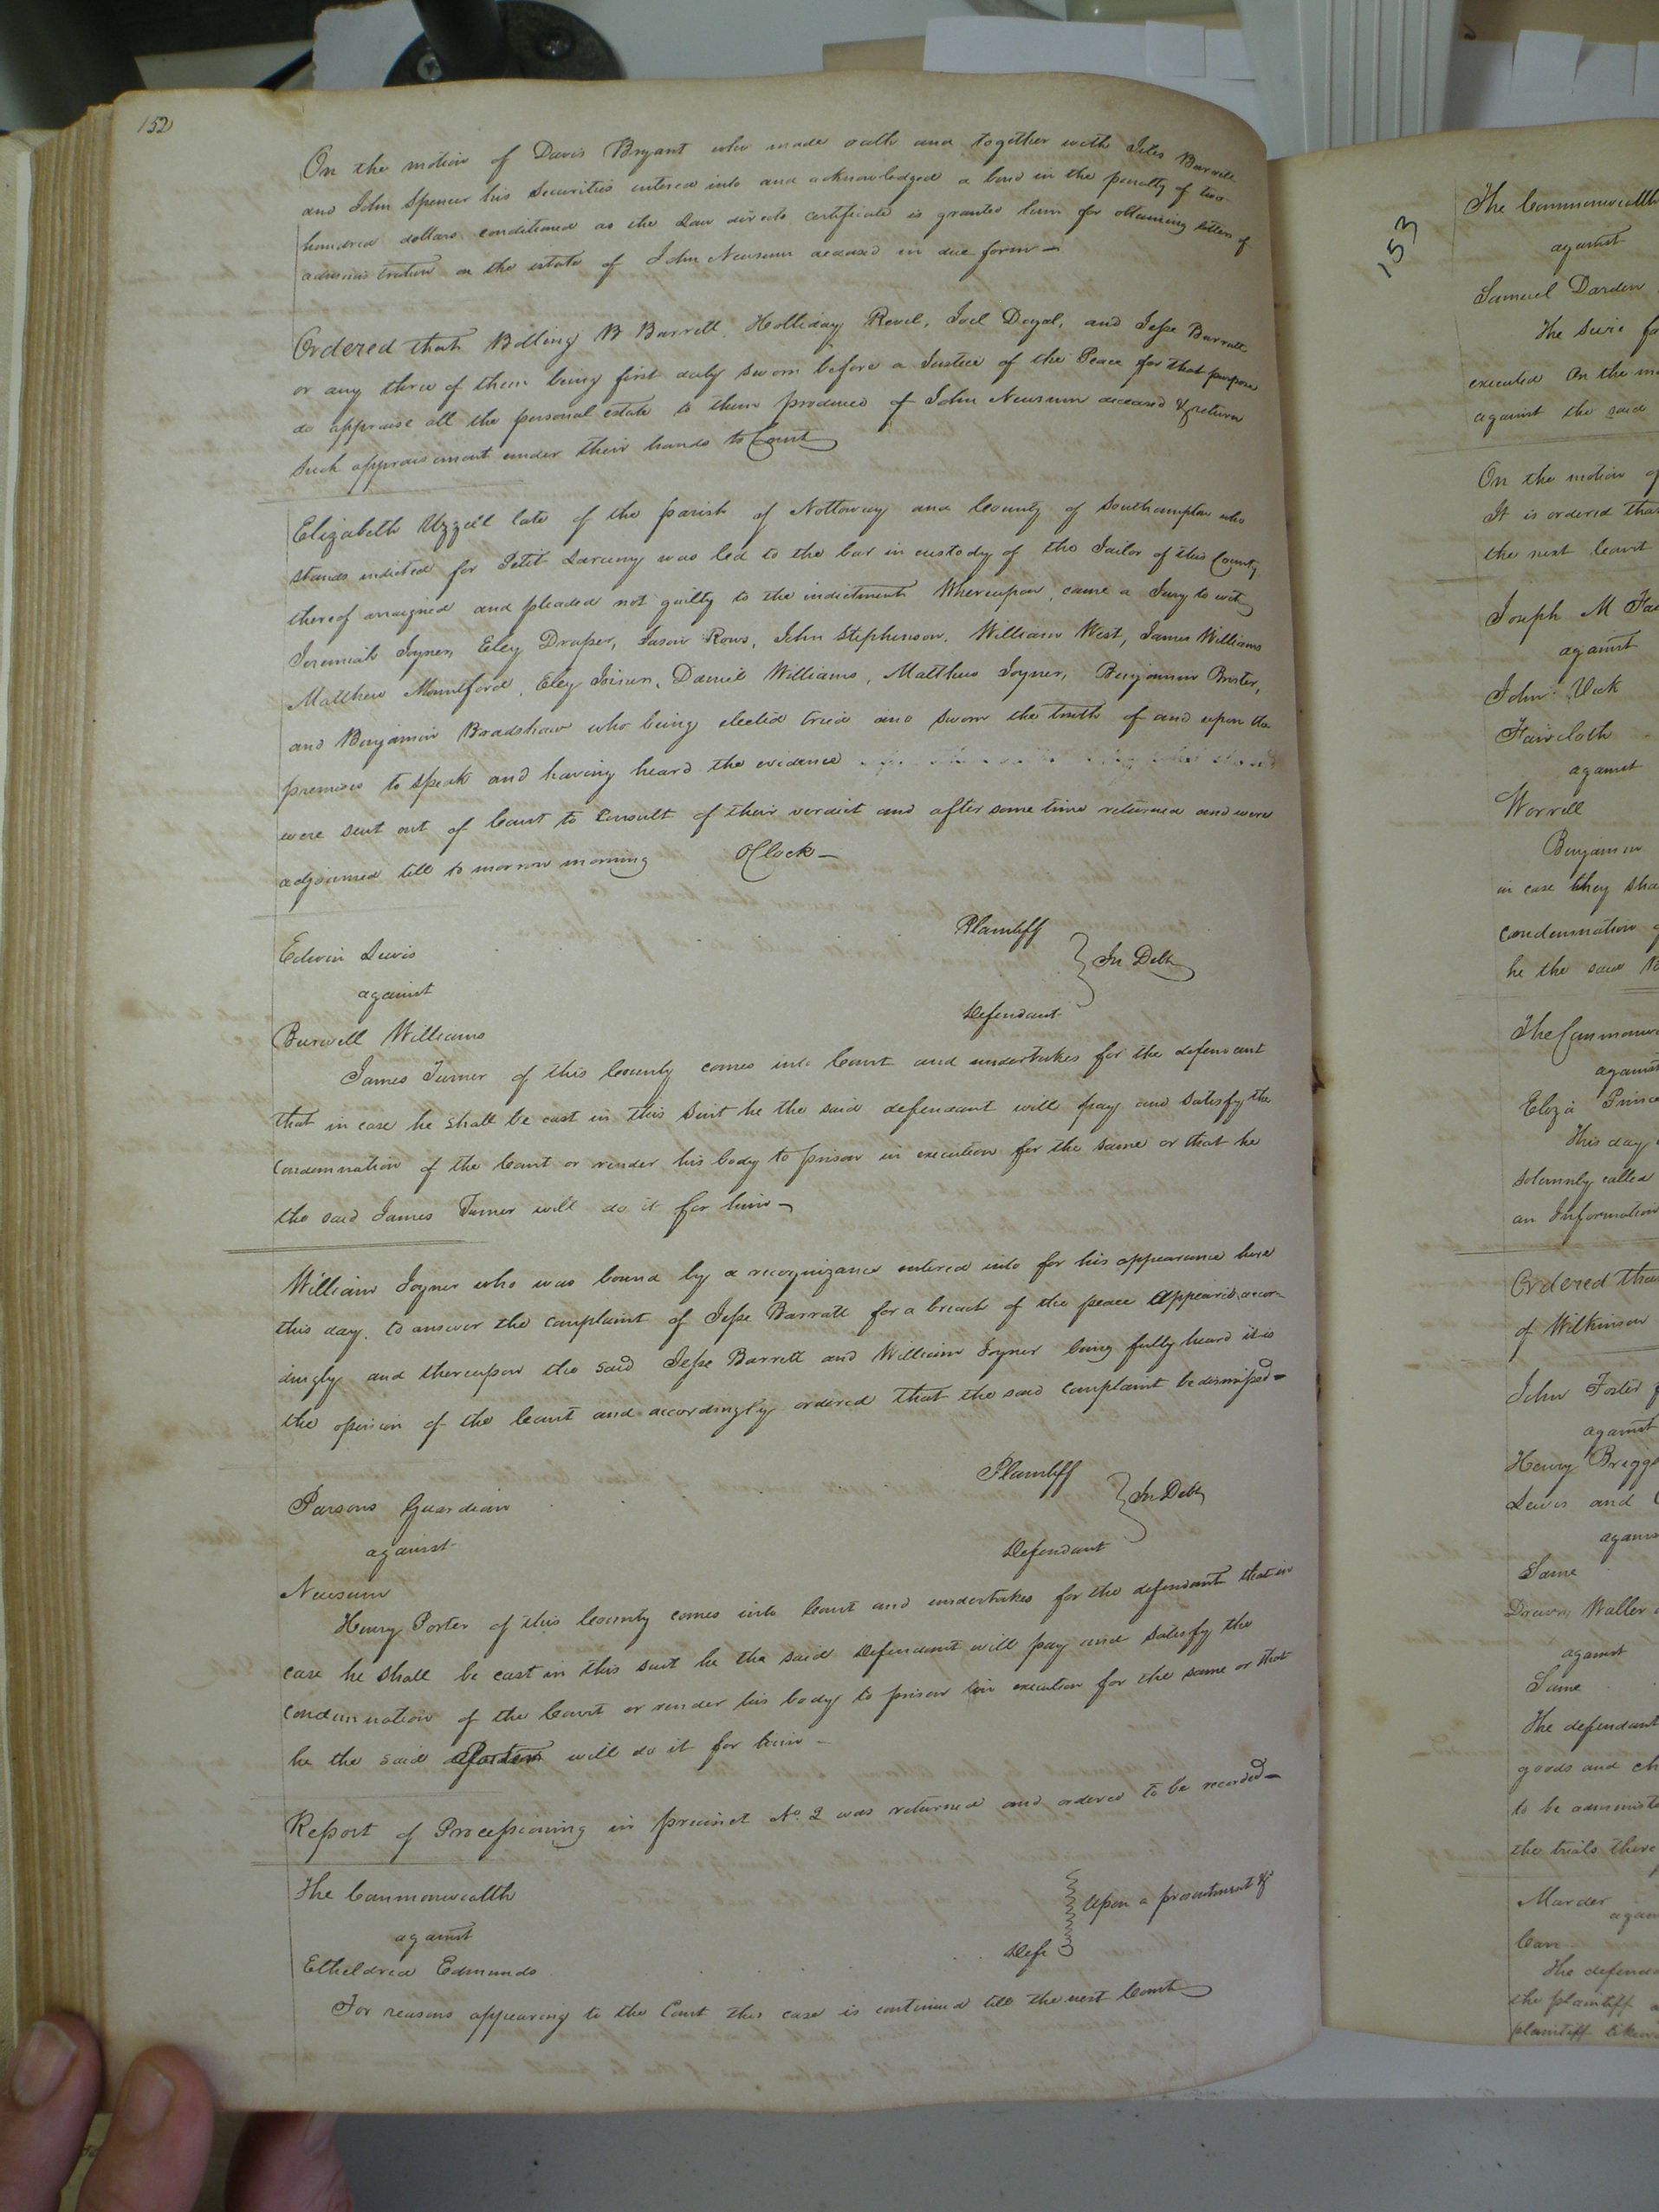 152
On the motion of Davis Bryant who made oath and together with Giles Barrett
and John Spencer his Securities entered into and acknowledged a bond in the penalty of two
hundred dollars conditioned as the Law directs certificate is granted him for obtaining letters of
administration on the estate of John Newsum deceased in due form—
Ordered that Bolling B Barrett, Holliday Revel, Joel Doyal, and Jesse Barrett
or any three of them being first duly sworn before a Justice of the Peace for that purpose
do appraise all the personal estate to them produced of John Newsum deceased & return
such appraisement under their hands to Court
Elizabeth Uzzell late of the parish of Nottoway and County of Southampton who
stands indicted for Petit Larceny was led to the bar in custody of the Jailor of this County
thereof arraigned and pleaded not guilty to the indictment Whereupon came a Jury to wit,
Jeremiah Joyner, Eley Draper, Jason Rows, John Stephenson, William West, James Williams
Matthew Mountford, Eley Joiner, Daniel Williams, Matthew Joyner, Benjamin Brister,
and Benjamin Bradshaw who being elected tried and sworn the truth of and upon the
premises to speak and having heard the evidence
were sent out of Court to Consult of their verdict and after some time returned and were
adjourned till to morrow morning OClock—
Edwin Lewis Plaintiff
against In Debt
Burwell Williams Defendant
James Turner of this County comes into Court and undertakes for the defendant
that in case he shall be cast in this suit he the said defendant will pay and satisfy the
condemnation of the Court or render his body to prison in execution for the same or that he
the said James Turner will do it for him—
William Joyner who was bound by a recognizance entered into for his appearance here
this day, to answer the complaint of Jesse Barrett for a breach of the peace appeared accor-
dingly and thereupon the said Jesse Barrett and William Joyner being fully heard it is
the opinion of the Court and accordingly ordered that the said complaint be dismissed—
Parsons Guardian Plaintiff
against In Debt
Newsum Defendant
Henry Porter of this County comes into Court and undertakes for the defendant that in
case he shall be cast in this suit he the said Defendant will pay and satisfy the
condemnation of the Court or render his body to prison in execution for the same or that
he the said Porter will do it for him—
Report of Processioning in precinct No. 2 was returned and ordered to be recorded—
The Commonwealth
against Upon a presentment &
Etheldred Edmunds Defe
For reasons appearing to the Court this case is continued till the next Court
153
The Commonwealth
against
Samuel Darden
The Scire fa
executed On the mo
against the said
On the motion of
It is ordered that
the next Court
Joseph M Fai
against
John Vick
Faircloth
against
Worrell
Benjamin
in case they sha
condemnation of
he the said B
The Commonw
against
Eliza Prince
This day
solemnly called
an Information
Ordered that
of Wilkinson
John Foster
against
Henry Briggs
Lewis and
against
Same
Drewry Waller
against
Same
The defendant
goods and ch
to be administe
the trials there
Murder
again
Carr
The defenda
the plaintiff
plaintiff liken